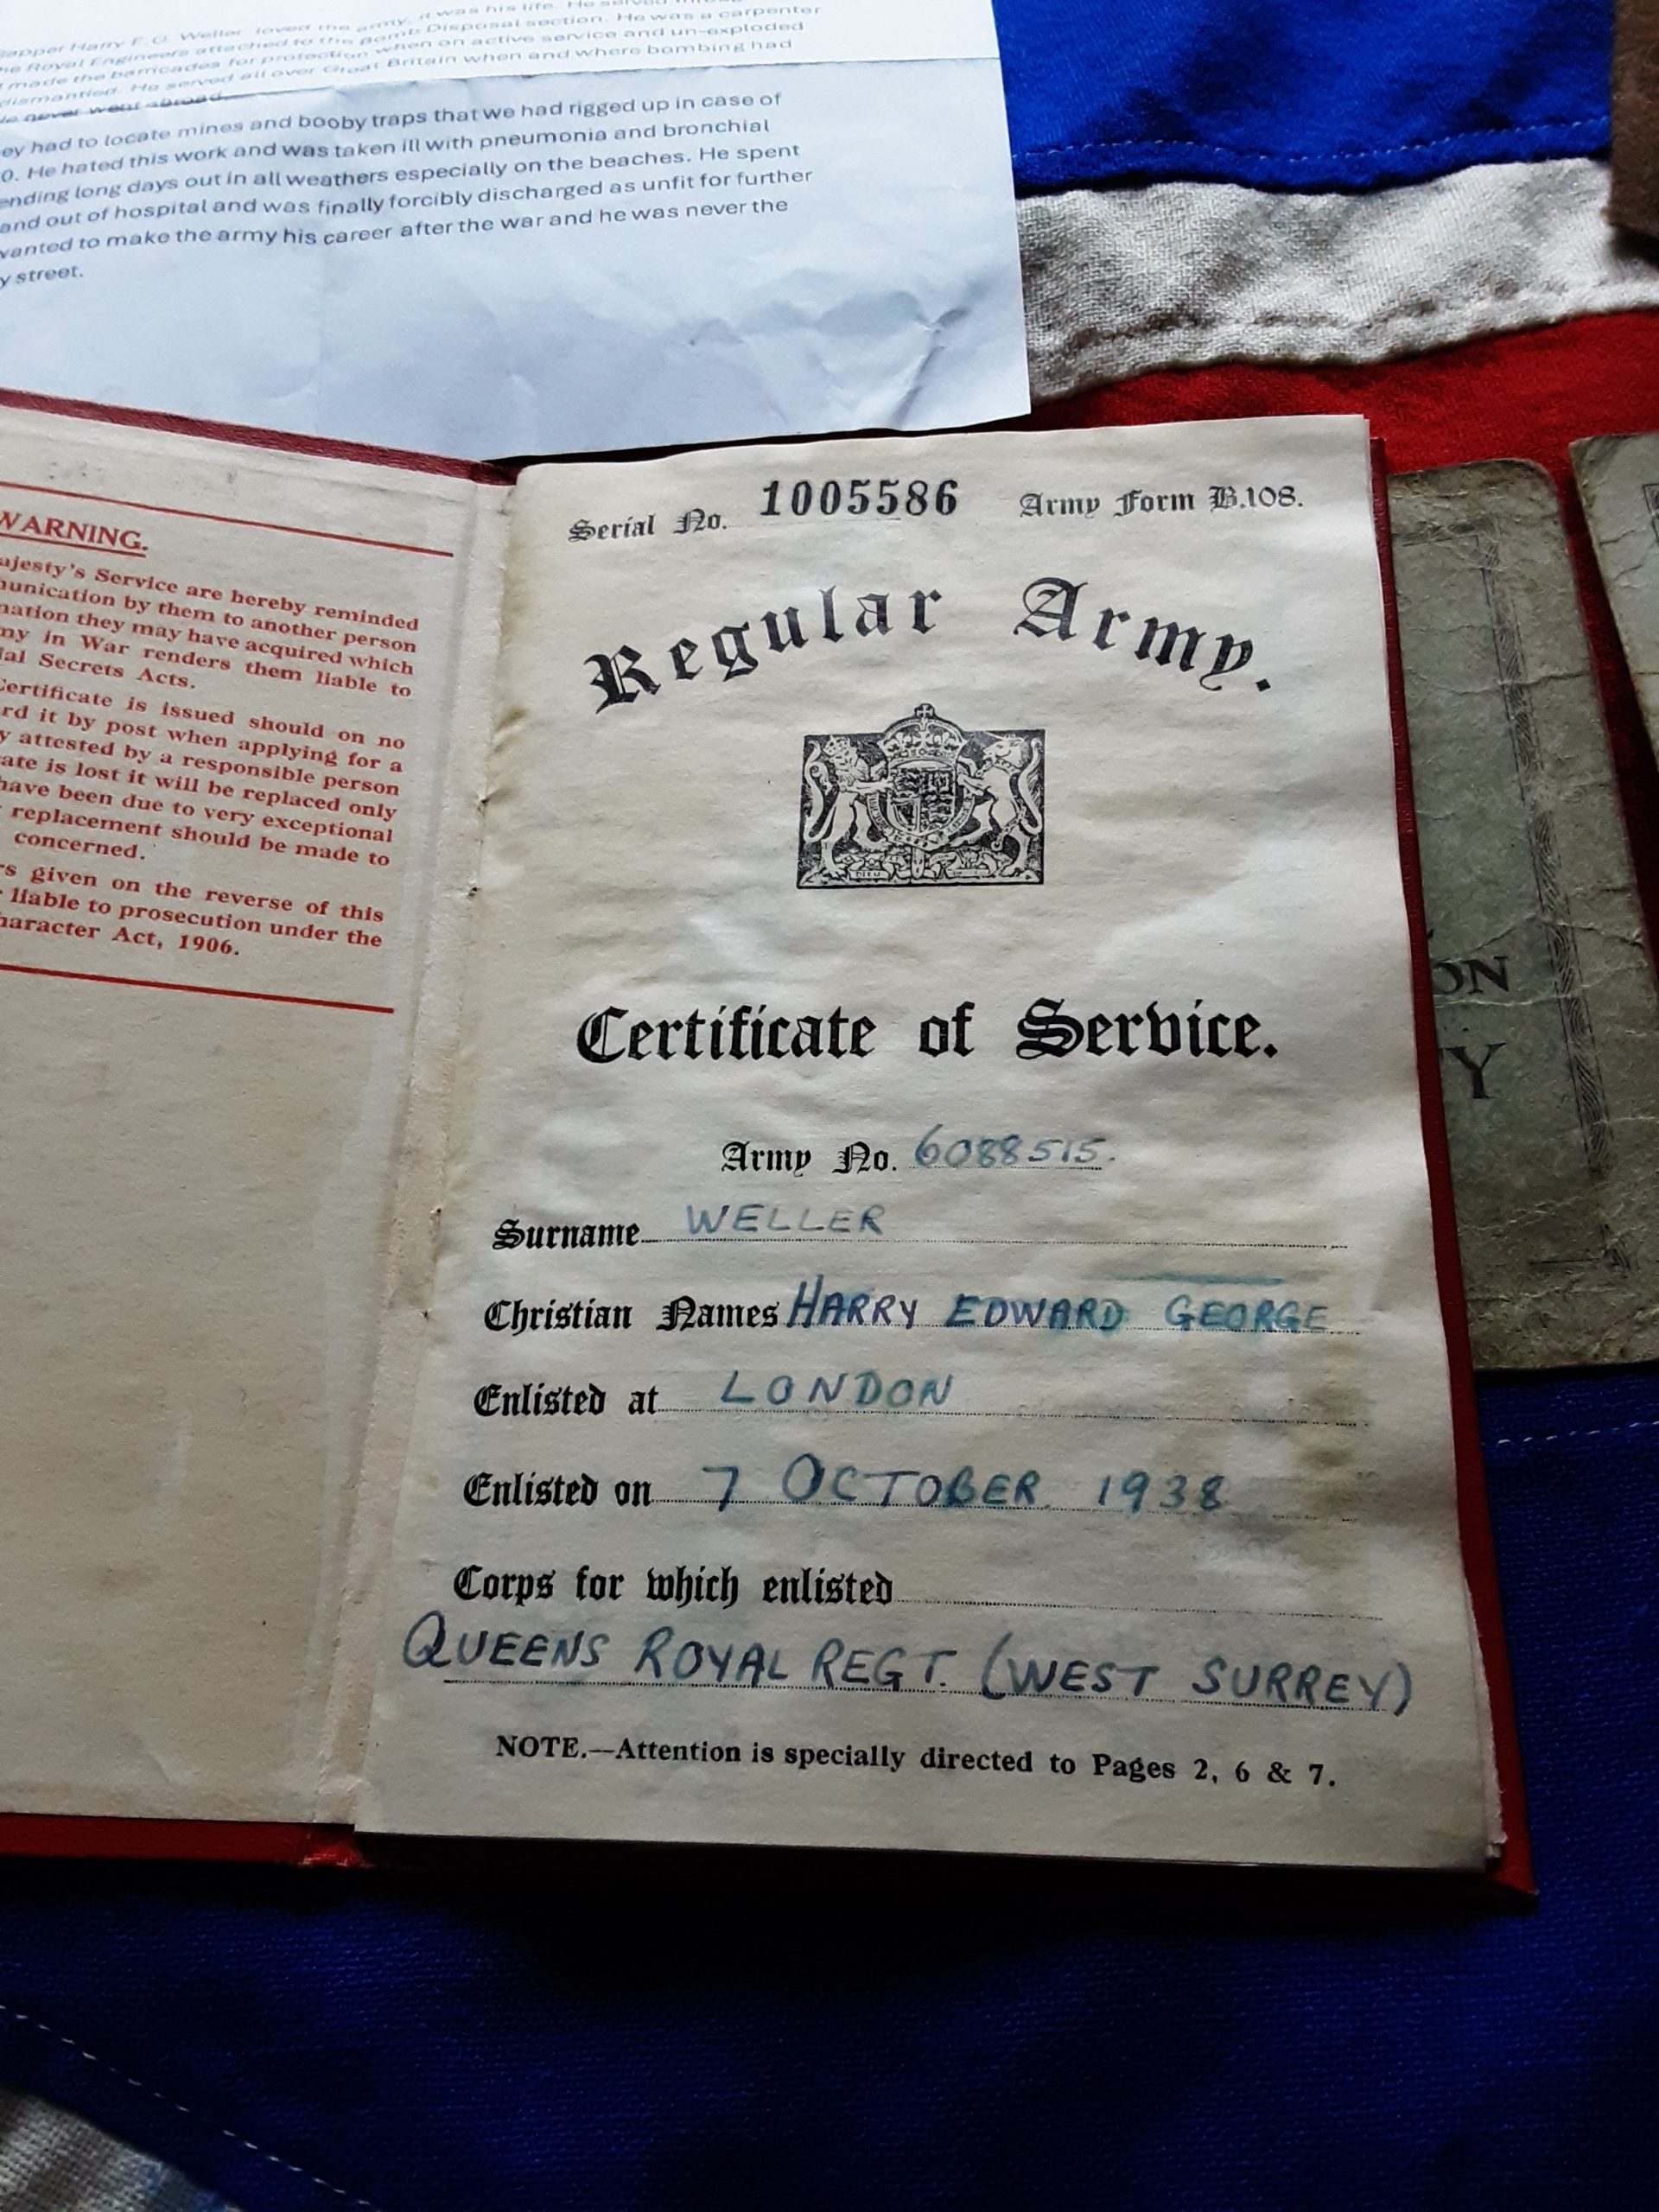 Sapper Harry E.G. Weller loved the army, it was his life. He served
the Royal Engineers attached to the Bomb Disposal section. He was a carpenter
made the barricades for protection when on active service and un-exploded
dismantled. He served all over Great Britain when and where bombing had
never went abroad.
ey had to locate mines and booby traps that we had rigged up in case of
0. He hated this work and was taken ill with pneumonia and bronchial
ending long days out in all weathers especially on the beaches. He spent
and out of hospital and was finally forcibly discharged as unfit for further
wanted to make the army his career after the war and he was never the
y street.
WARNING.
ajesty's Service are hereby reminded
munication by them to another person
mation they may have acquired which
my in War renders them liable to
ial Secrets Acts.
Certificate is issued should on no
rd it by post when applying for a
y attested by a responsible person
ate is lost it will be replaced only
have been due to very exceptional
replacement should be made to
concerned.
rs given on the reverse of this
liable to prosecution under the
haracter Act, 1906.
Serial No. 1005586 Army Form B.108.
Regular Army.
DIEU
Certificate of Service.
Army No. 6088515.
Surname WELLER
Christian Names HARRY EDWARD GEORGE
Enlisted at LONDON
Enlisted on 7 OCTOBER 1938
Corps for which enlisted
QUEENS ROYAL REGT. (WEST SURREY)
NOTE.—Attention is specially directed to Pages 2, 6 & 7.
ON
TY